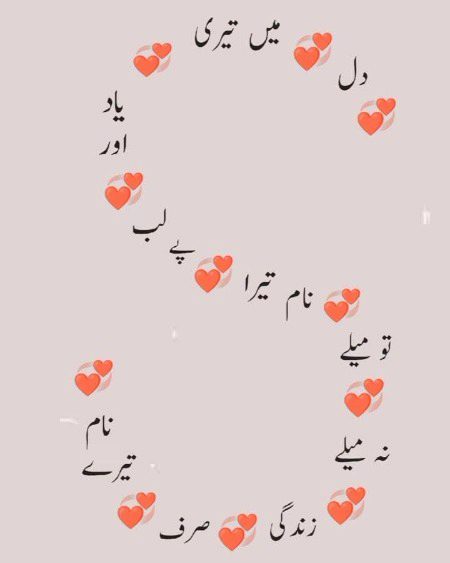 دل
میں تیری
یاد
اور
لب
پے
تیرا نام
تو میلے
نہ میلے
زندگی
صرف
تیرے
نام